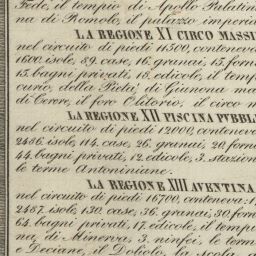 Fede, il tempio di Apollo Palatin
na di Romolo, il palazzo imperia
LA REGIONE XI CIRCO MASSI
nel circuito di piedi 11500, conteneva
1600. isole, 89. case, 16. granai, 15. forn
15. bagni privati, 18. edicole, il temp
curio, della Pietà, di Giunona ma
di Cerere, il foro Olitorio, il circo m
LA REGIONE XII PISCINA PVBBL
nel circuito di piedi 12000, conteneva
2486. isole, 114. case, 26. granai, 20. forn
44. bagni privati, 12. edicole, 3. stazion
le terme Antoniniane.
LA REGIONE XIII AVENTINA
nel circuito di piedi 16700, conteneva: 1
2487. isole, 130. case, 36. granai, 30 forn
64. bagni privati, 17. edicole, il tempio
na, di Minerva, 3. ninfei, le terme
e Deciane, il Doliolo, la scola